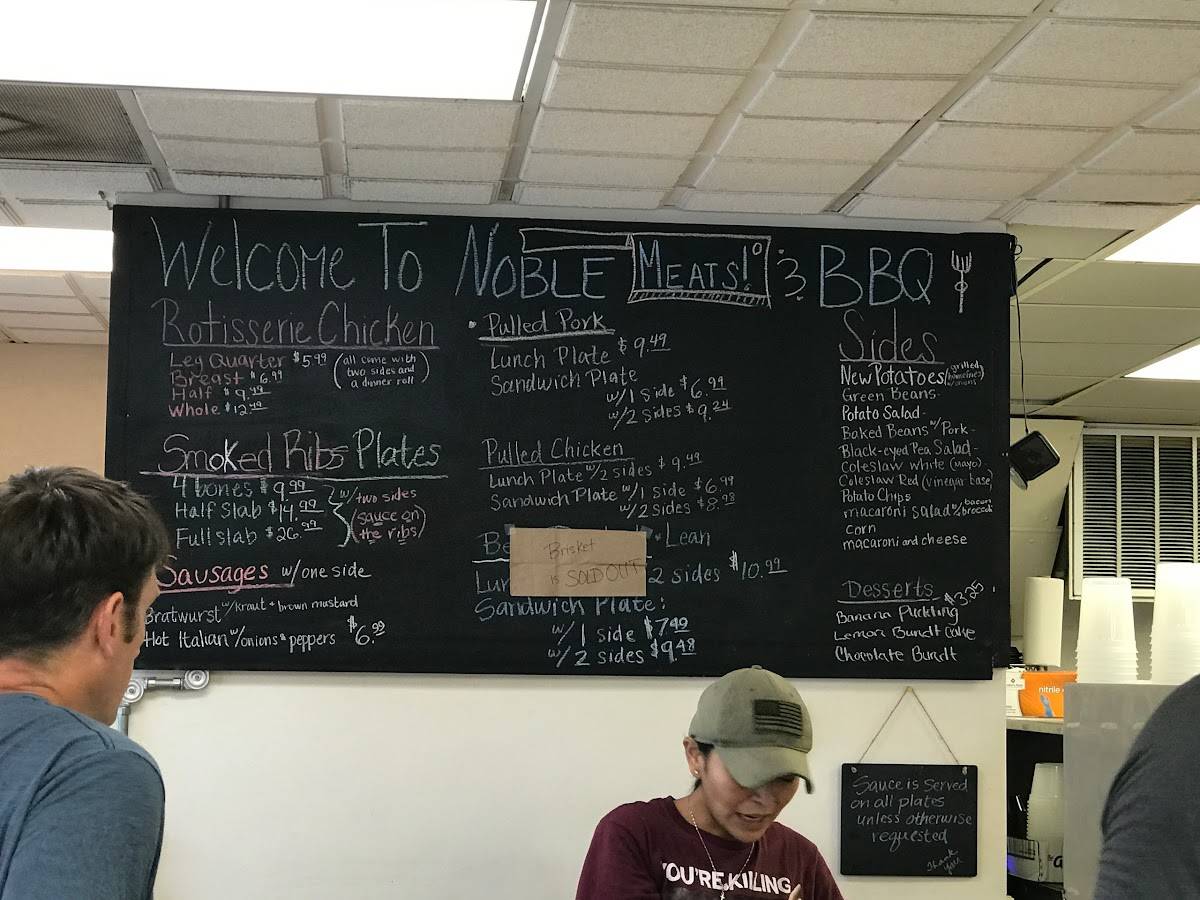 Welcome To Noble Meats! & BBQ
Rotisserie Chicken
Leg Quarter $5.49
Breast $6.99
Half $9.49
Whole $12.49
(all come with
two sides and
a dinner roll)
Smoked Ribs Plates
4 bones $9.99
Half Slab $14.99
Full slab $26.99
w/two sides
(sauce on
the ribs)
Sausages w/one side
Bratwurst w/kraut + brown mustard
Hot Italian w/onions & peppers $6.99
• Pulled Pork
Lunch Plate $9.49
Sandwich Plate
w/1 side $6.99
w/2 sides $9.24
Pulled Chicken
Lunch Plate w/2 sides $9.49
Sandwich Plate w/1 side $6.99
w/2 sides $8.98
Be
• Lean
Brisket
is SOLD OUT
Lun
2 sides $10.99
Sandwich Plate:
w/1 side $7.49
w/2 sides $9.48
Sides
New Potatoes (grilled
w/onions)
Green Beans-
Potato Salad-
Baked Beans w/Pork-
Black-eyed Pea Salad-
Coleslaw White (Mayo)
Coleslaw Red (Vinegar base)
Potato Chips
macaroni salad w/bacon
broccoli
corn
macaroni and cheese
Desserts $3.25
Banana Pudding
Lemon Bundt Cake
Chocolate Bundt
Sauce is served
on all plates
unless otherwise
requested
Thank
you
nitrile
YOU'RE KILLING